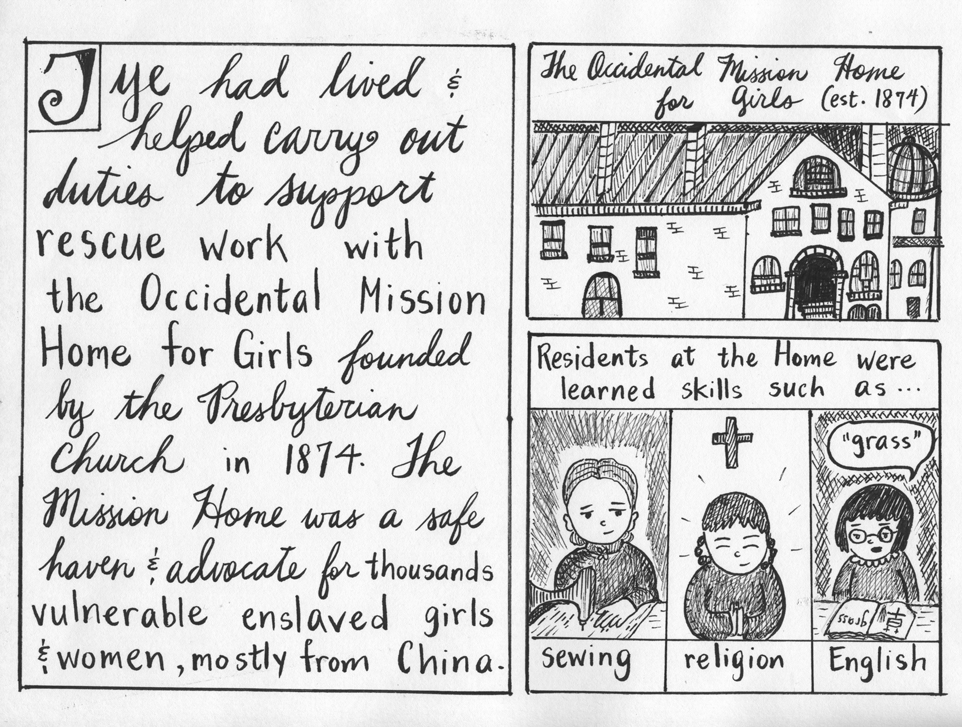 Tye had lived &
helped carry out
duties to support
rescue work with
the Occidental Mission
Home for Girls founded
by the Presbyterian
Church in 1874. The
Mission Home was a safe
haven & advocate for thousands
vulnerable enslaved girls
& women, mostly from China.
The Occidental Mission Home
for Girls (est. 1874)
Residents at the Home were
learned skills such as...
"grass"
grass 草
sewing
religion
English